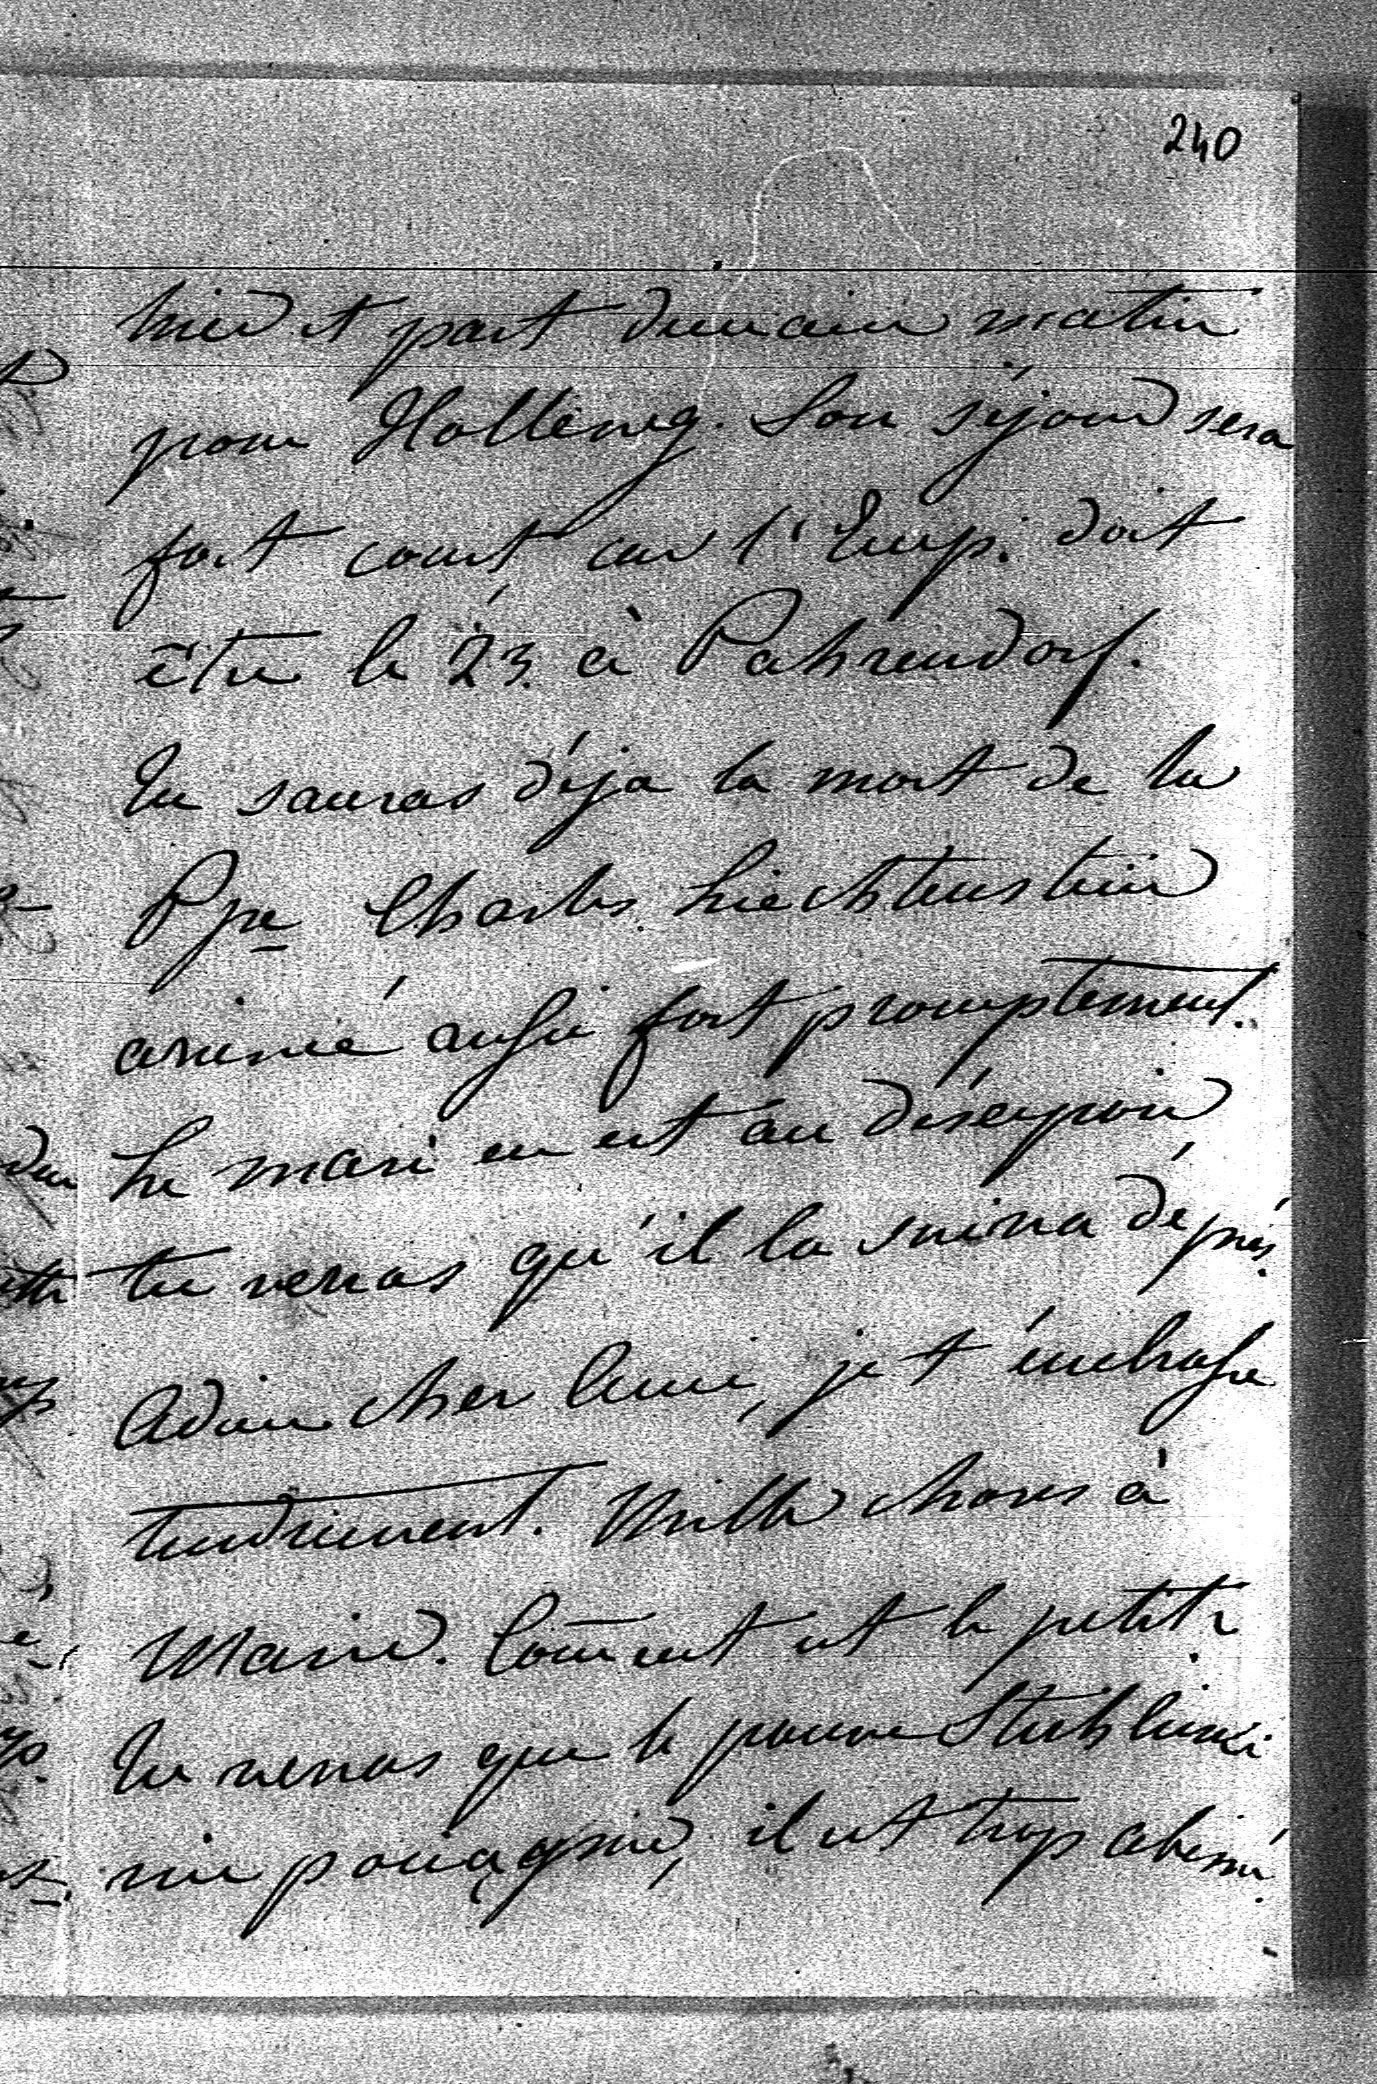 240
hier et part demain matin
pour Hollenegg. Son séjour sera
fort court car l'Emp. doit
être le 23. à Pahrendorf.
Tu sauras déjà la mort de la
Pse Charles Liechtenstein
arrivée aussi fort promptement.
Le mari en est au désespoir
tu verras qu'il la suivra de près.
Adieu cher Ami, je t'embrasse
tendrement. Mille choses à
Marie. Coment est le petit?
Tu verras que le pauvre
il est trop abimé.